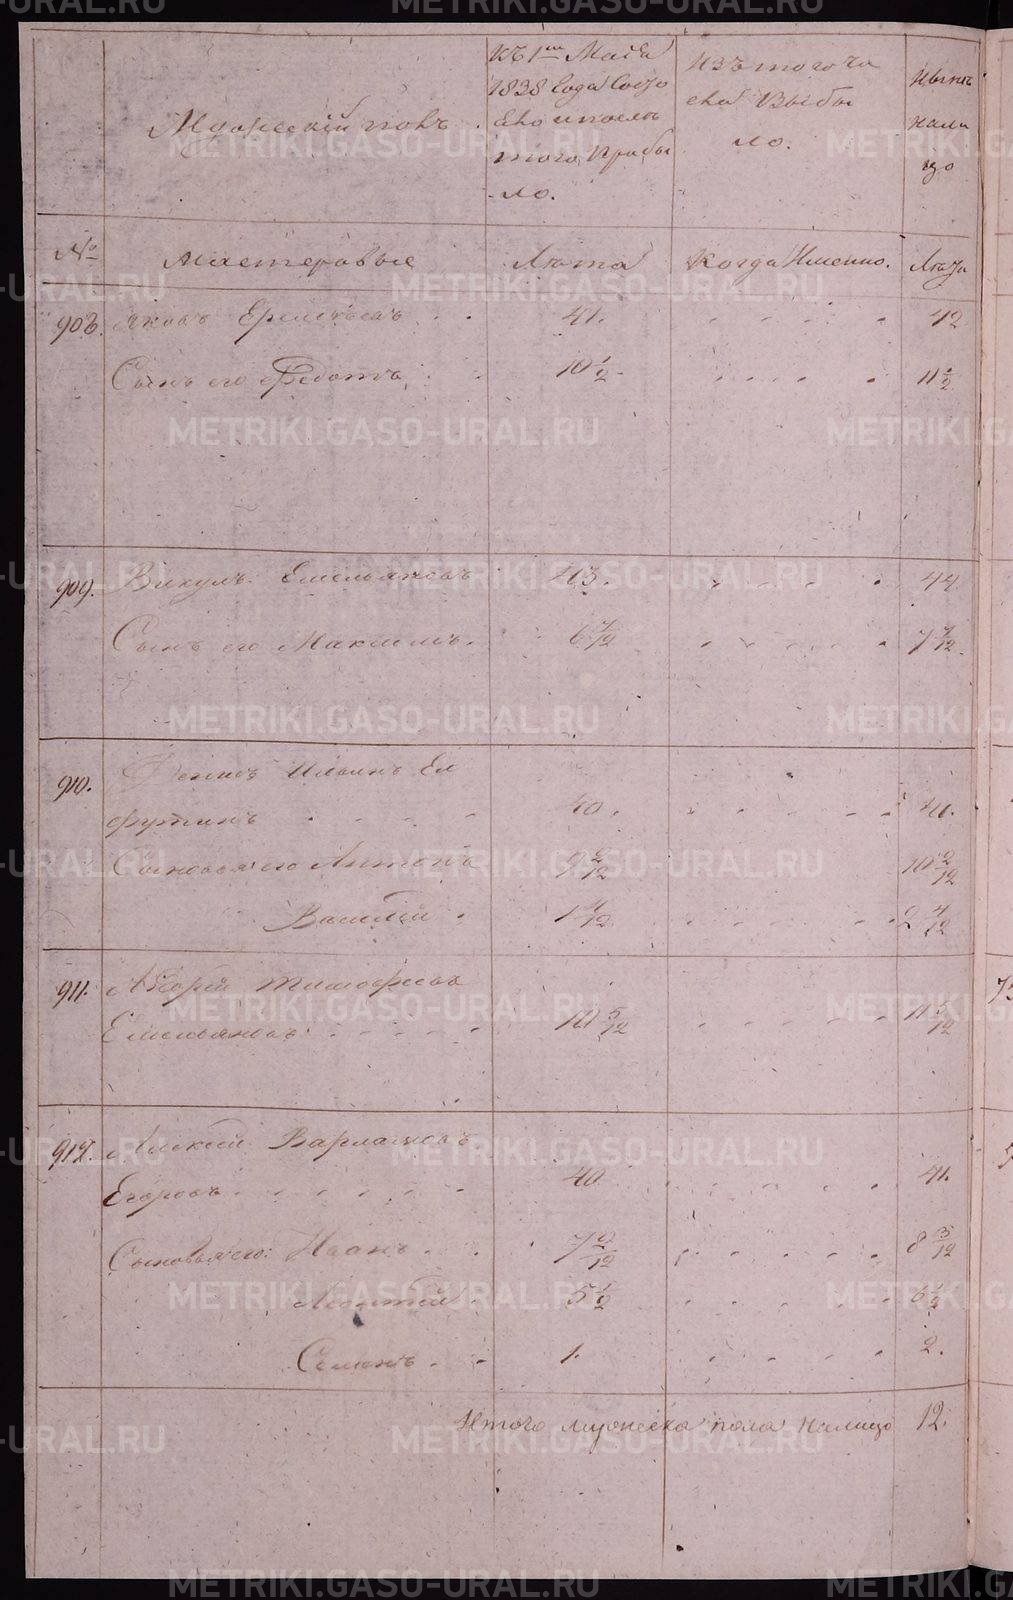 Мужескiй полъ
Къ 1му Маiя
1838 Года Состо
яло и послѣ
того прибы
ло.
Изъ того чи
сла Выбы
ло.
Нынѣ
нали
цо
№
Мастеровые
Лѣта
Когда Именно.
Лѣта
908. Яковъ Ермолаевъ 41. 42
Сынъ его Федотъ 10 1/2 11 1/2
909. Викулъ Емельяновъ 43. 44
Сынъ его Максимъ. 6 7/12 7 7/12
910. Денисъ Ильинъ Ел
футинъ 40. 41.
Сыновья его Антонъ 9 2/12 10 2/12
Василiй 1 4/12 2 4/12
911. Тимофеевъ
Емельяновъ 10 5/12 11 5/12
912. Алексѣй Варламовъ
Егоровъ 40 41.
Сыновья его: Иванъ 7 3/12 8 3/12
Леонтiй 5 1/2 6 1/2
Семенъ 1. 2.
Итого мужеска пола налицо 12.
METRIKI.GASO-URAL.RU